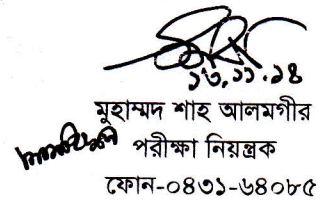 ১৩.১১.১৪
মুহাম্মদ শাহ আলমগীর
পরীক্ষা নিয়ন্ত্রক
ফোন-০৪৩১-৬৪০৮৫